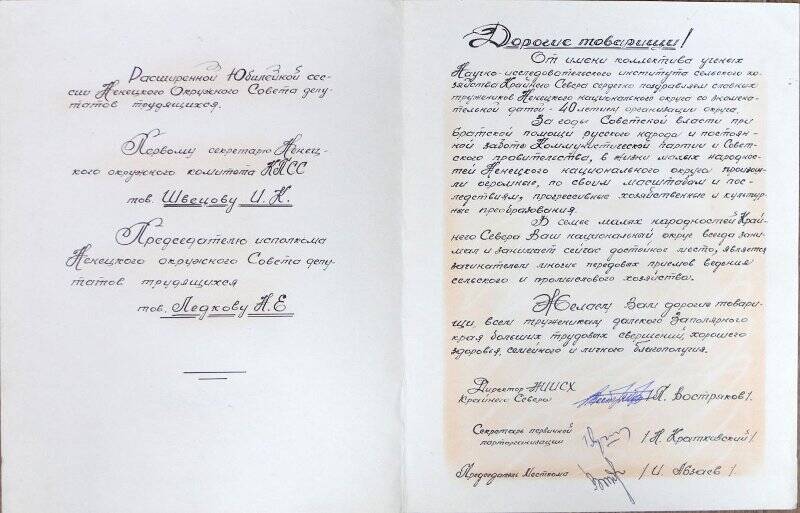 Расширенной Юбилейной сес-
сии Ненецкого Окружного Совета депу-
татов трудящихся.
Первому секретарю Ненец-
кого окружного комитета КПСС
тов. Швецову И. К.
Председателю исполкома
Ненецкого окружного Совета депу-
татов трудящихся
тов. Ледкову Н. Е
Дорогие товарищи!
От имени коллектива ученых
Научно-исследовательского института сельского хо-
зяйства Крайнего Севера сердечно поздравляем славных
тружеников Ненецкого национального округа со знамена-
тельной датой - 40летием организации округа.
За годы Советской власти при
братской помощи русского народа и постоян-
ной заботе Коммунистической партии и Совет-
ского правительства, в жизни малых народнос-
тей Ненецкого национального округа произош-
ли огромные, по своим масштабам и пос-
ледствиям, прогрессивные хозяйственные и культур-
ные преобразования.
В семье малых народностей Край-
него Севера Ваш национальный округ всегда зани-
мал и занимает сейчас достойное место, является
зачинателем многих передовых приемов ведения
сельского и промыслового хозяйства.
Желаем Вам дорогие товари-
щи, всем труженикам далекого Заполярного
края больших трудовых свершений, хорошего
здоровья, семейного и личного благополучия.
Директор НИИСХ
Крайнего Севера /П. Востряков/.
Секретарь первичной
парторганизации /Н. Кратковский/
Председатель Месткома /И. Явзаев/